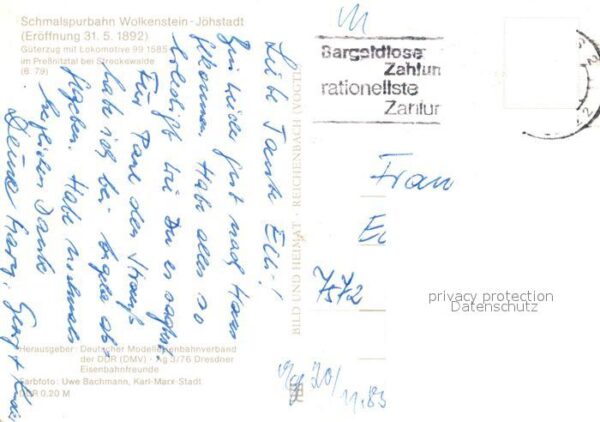 Schmalspurbahn Wolkenstein - Jöhstadt
(Eröffnung 31. 5. 1892)
Güterzug mit Lokomotive 99 1585
im Preßnitztal bei Streckewalde
(6. 79)
Liebe Tante Elli!
Bin wieder gut nach Haus
gekommen. Habe alles so
erledigt wie Du es sagtest.
Für Paul den Strauß
habe ich bei Angela ab-
gegeben. Habe nochmals
herzlichen Dank
Deine Mary, Georg +
BILD UND HEIMAT · REICHENBACH (VOGTL)
Herausgeber: Deutscher Modelleisenbahnverband
der DDR (DMV) - Ag 3/76 Dresdner
Eisenbahnfreunde
Farbfoto: Uwe Bachmann, Karl-Marx-Stadt
DDR 0,20 M
Bargeldlose
Zahlun
rationellste
Zahlun
Frau
E
7572
privacy protection
Datenschutz
20/
11.83